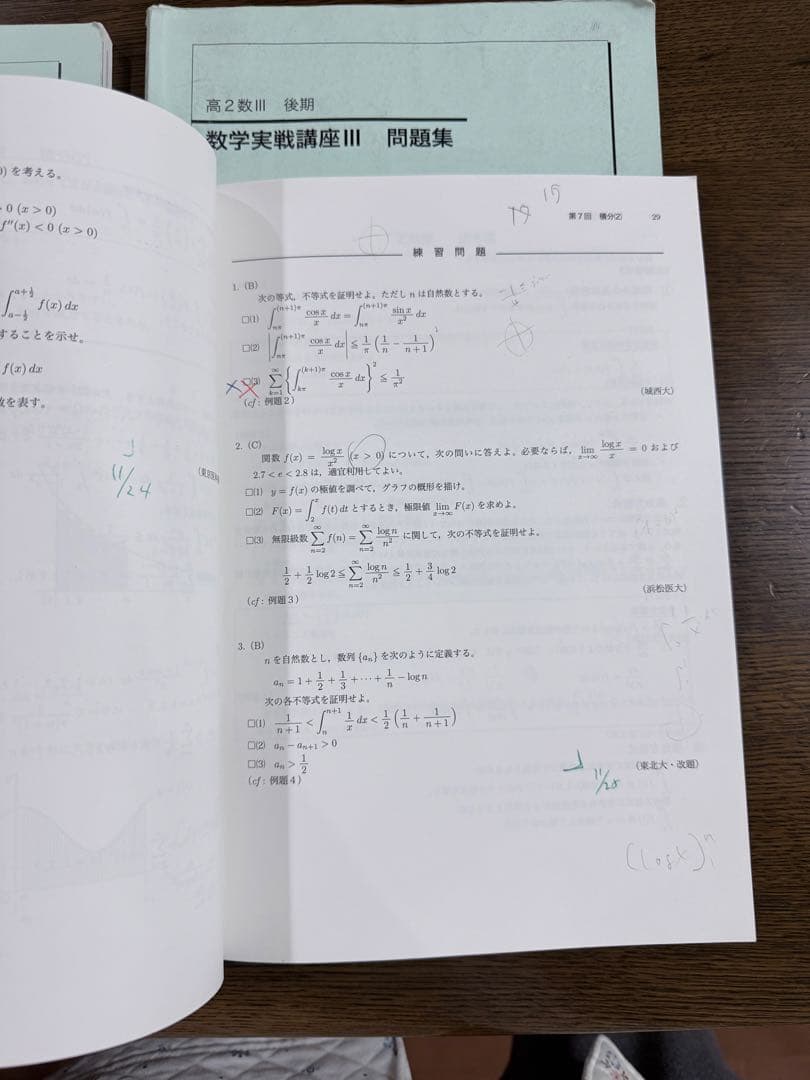 高2数III 後期
数学実戦講座III 問題集
)を考える。
> 0 (x > 0)
f''(x) < 0 (x > 0)
∫_{a-1/2}^{a+1/2} f(x) dx
することを示せ。
f(x) dx
を表す。
11/24
19
第7回 積分(2) 29
練習問題
1. (B)
次の等式，不等式を証明せよ。ただし n は自然数とする。
□(1) ∫_{nπ}^{(n+1)π} cos x/x dx = ∫_{nπ}^{(n+1)π} sin x/x² dx
□(2) |∫_{nπ}^{(n+1)π} cos x/x dx| ≦ 1/π (1/n − 1/(n+1))
□(3) Σ_{k=1}^{∞} {∫_{kπ}^{(k+1)π} cos x/x dx}² ≦ 1/π²
(cf: 例題2)
(城西大)
2. (C)
関数 f(x) = log x/x² (x > 0) について，次の問いに答えよ。必要ならば，lim_{x→∞} log x/x = 0 および
2.7 < e < 2.8 は，適宜利用してよい。
□(1) y = f(x) の極値を調べて，グラフの概形を描け。
□(2) F(x) = ∫_2^x f(t) dt とするとき，極限値 lim_{x→∞} F(x) を求めよ。
□(3) 無限級数 Σ_{n=2}^{∞} f(n) = Σ_{n=2}^{∞} log n/n² に関して，次の不等式を証明せよ。
1/2 + 1/2 log 2 ≦ Σ_{n=2}^{∞} log n/n² ≦ 1/2 + 3/4 log 2
(cf: 例題3)
(浜松医大)
3. (B)
n を自然数とし，数列 {a_n} を次のように定義する。
a_n = 1 + 1/2 + 1/3 + ⋯ + 1/n − log n
次の各不等式を証明せよ。
□(1) 1/(n+1) < ∫_n^{n+1} 1/x dx < 1/2 (1/n + 1/(n+1))
□(2) a_n − a_{n+1} > 0
□(3) a_n > 1/2
(cf: 例題4)
(東北大・改題)
11/25
(log x)^n